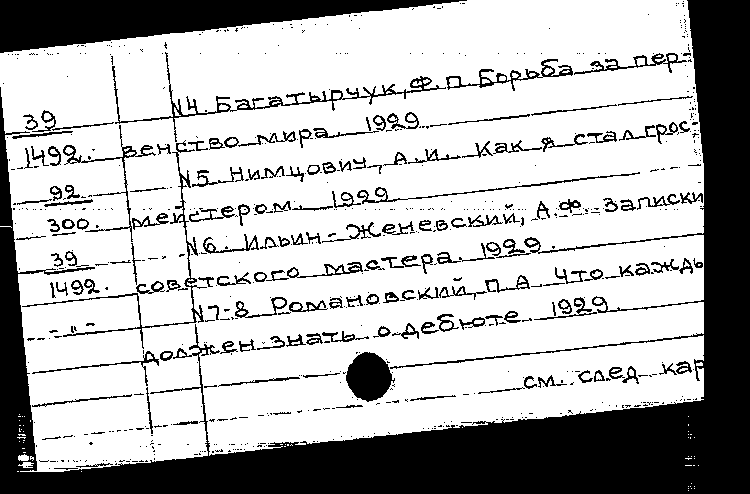 39 N4. Багатырчук, Ф.П. Борьба за пер-
1492. венство мира. 1929
92 N5. Нимцович, А.И. Как я стал грос-
300. мейстером. 1929
39 N6. Ильин-Женевский, А.Ф. Записки
1492. советского мастера. 1929.
-"- N7-8 Романовский, П.А Что кажды
должен знать о дебюте. 1929.
см. след кар